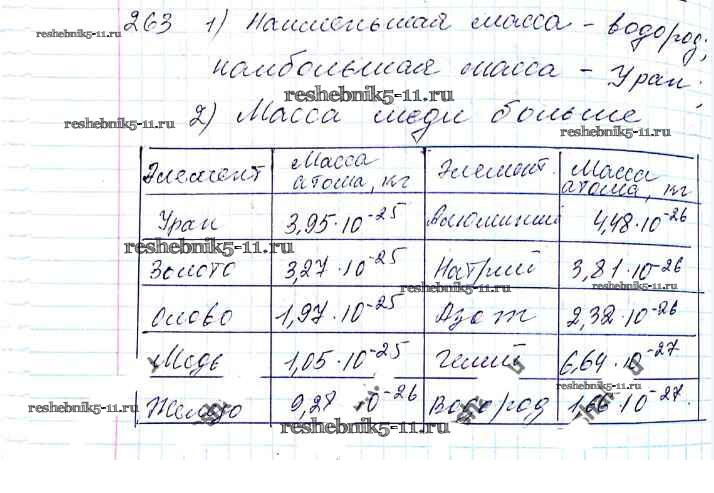 263 1) Наименьшая масса - водород;
reshebnik5-11.ru
наибольшая масса - Уран.
reshebnik5-11.ru
reshebnik5-11.ru
2) Масса меди больше
reshebnik5-11.ru
Элемент Масса атома, кг Элемент Масса атома, кг
Уран 3,95·10⁻²⁵ Алюминий 4,48·10⁻²⁶
reshebnik5-11.ru
Золото 3,27·10⁻²⁵ Натрий 3,81·10⁻²⁶
reshebnik5-11.ru
Олово 1,97·10⁻²⁵ Азот 2,32·10⁻²⁶
reshebnik5-11.ru
Медь 1,05·10⁻²⁵ Гелий 6,64·10⁻²⁷
Железо 9,27·10⁻²⁶ Водород 1,66·10⁻²⁷
reshebnik5-11.ru
reshebnik5-11.ru
reshebnik5-11.ru